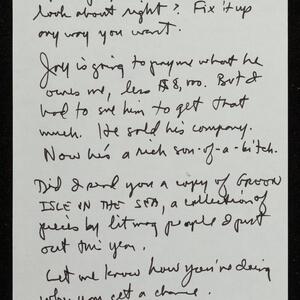 look about right? Fix it up
any way you want.
Jay is going to pay me what he
owes me, less $8,100. But I
had to sue him to get that
much. He sold his company.
Now he's a rich son-of-a-bitch.
Did I send you a copy of GREEN
ISLE IN THE SEA, a collection of
pieces by lit mag people I put
out this year.
Let me know how you're doing
when you get a chance.